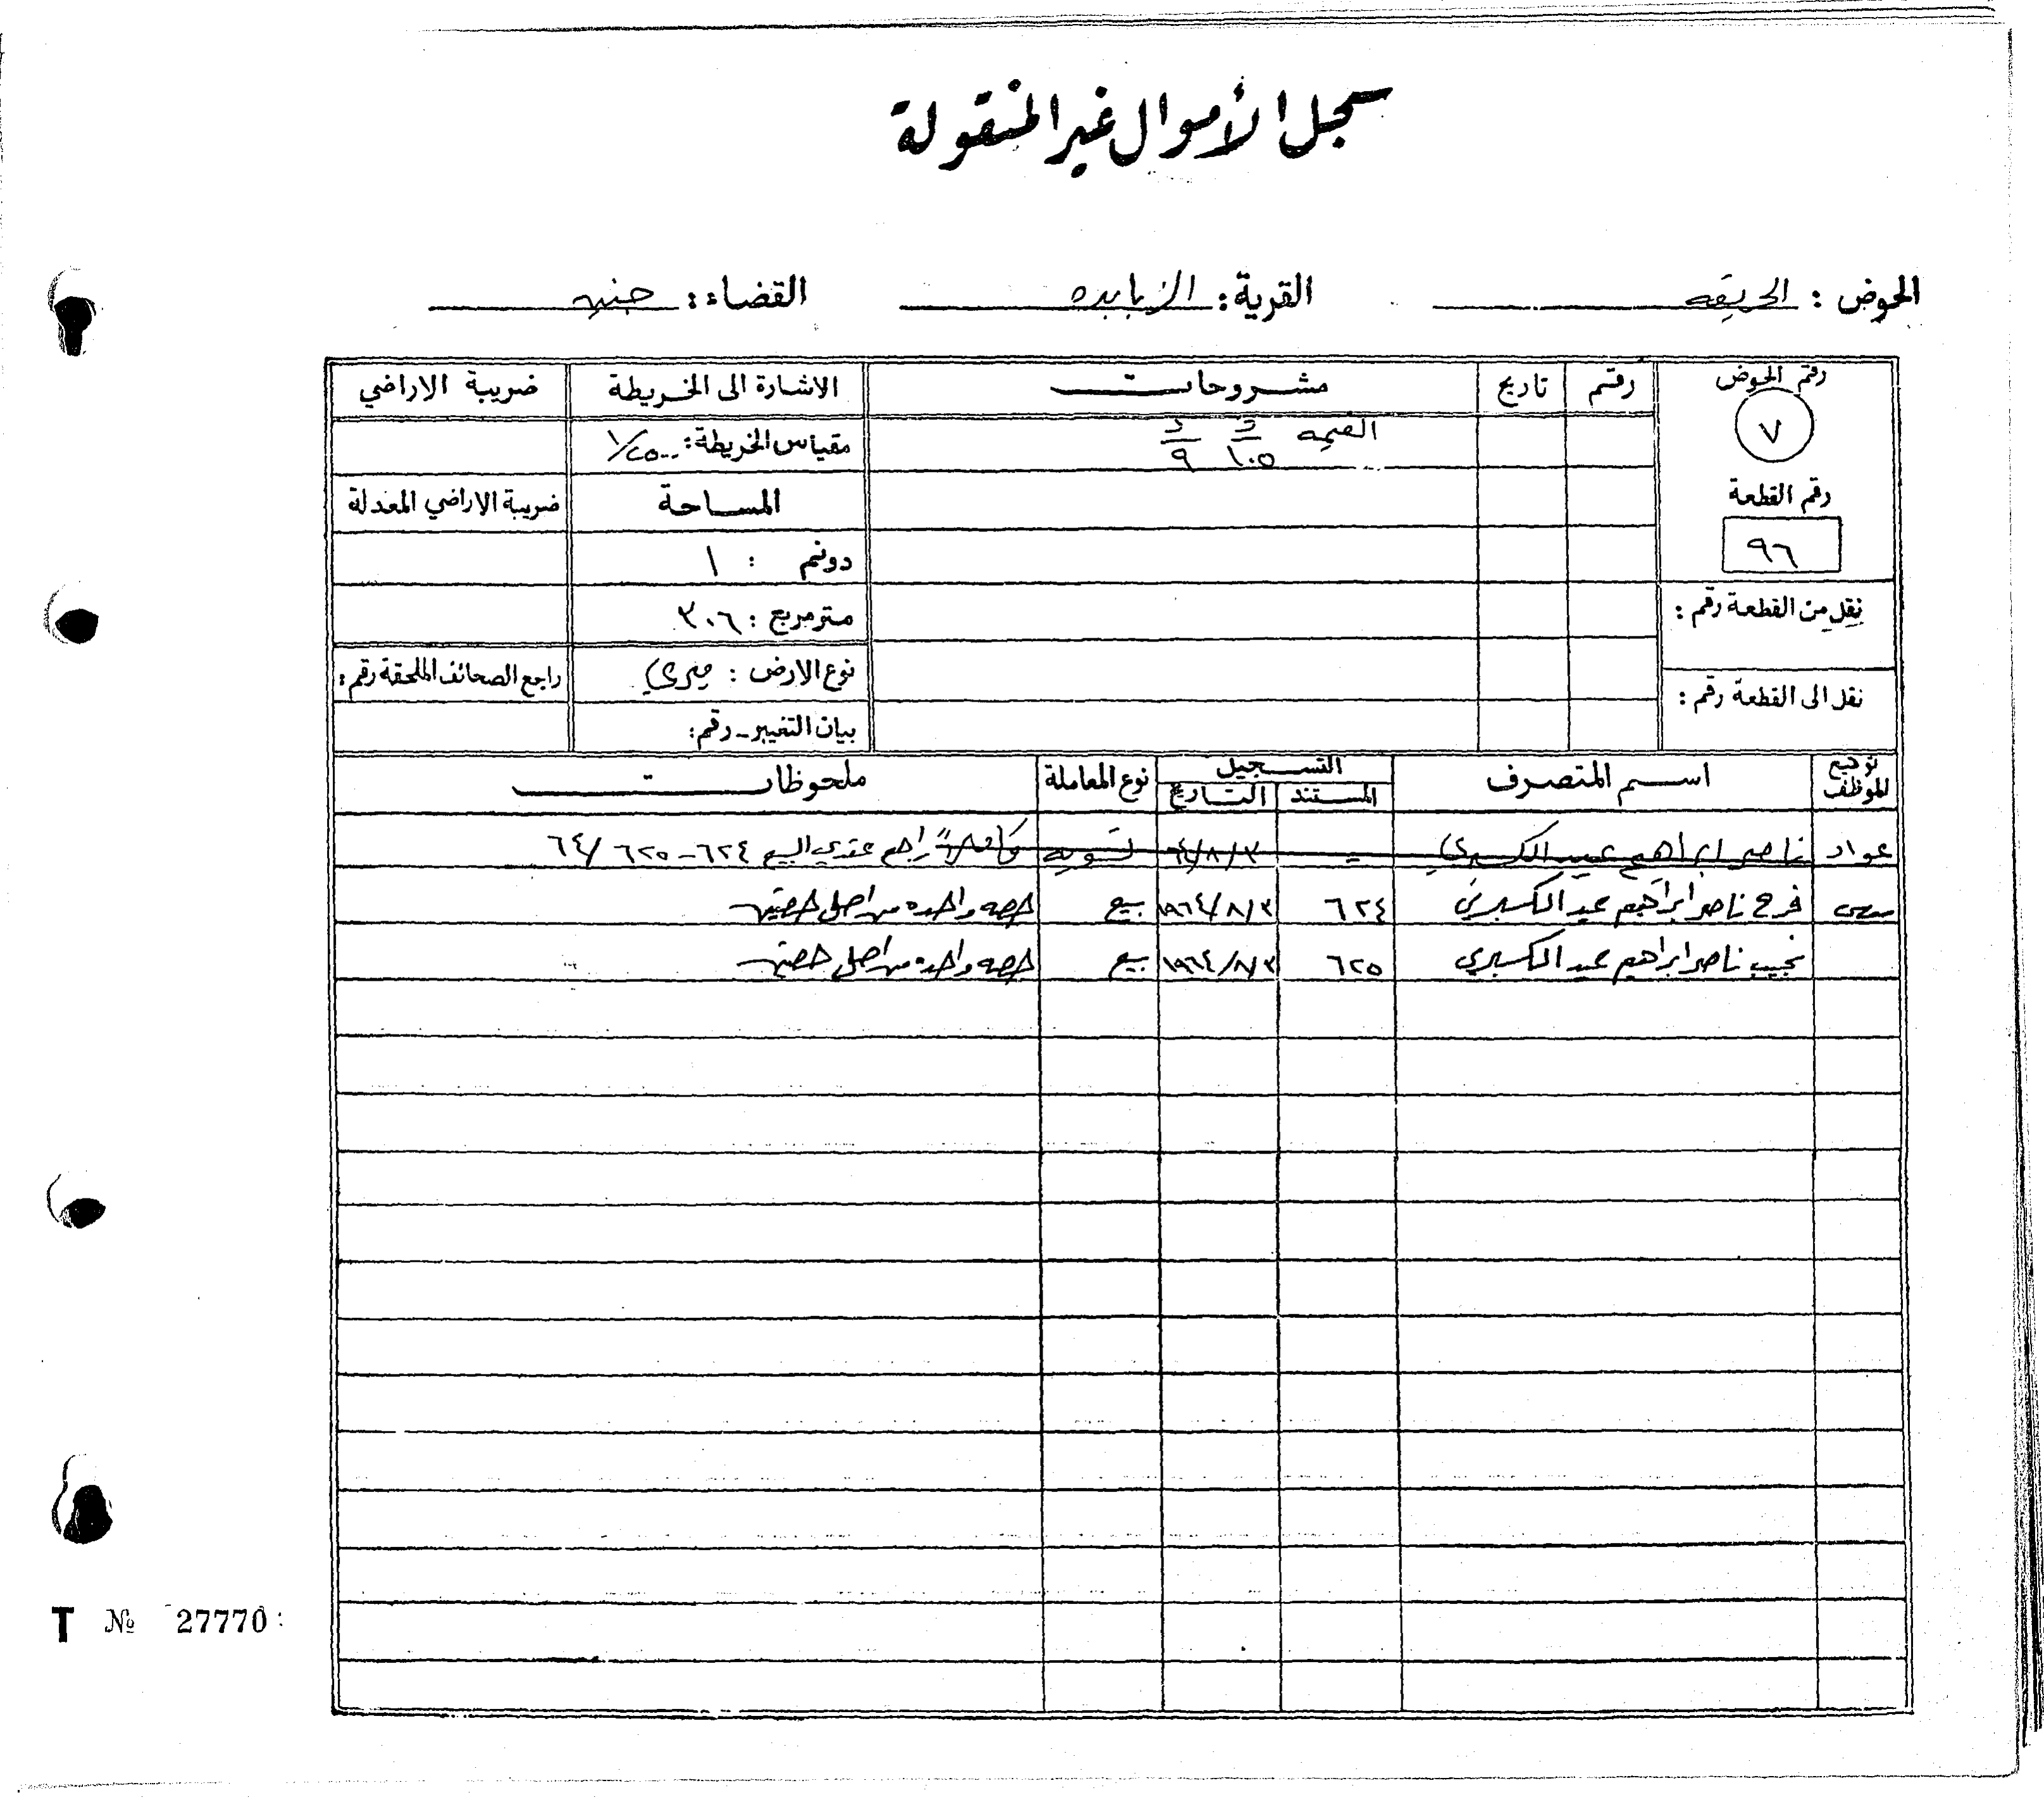 سجل الأموال غير المنقولة
الحوض : الحريقه القرية : الزبابده القضاء : جنين
رقم الحوض رقم تاريخ مشروحات الاشارة الى الخريطة ضريبة الاراضي
٧ القيمه ١٠٥ ٩ مقياس الخريطة : ١/٢٥٠٠
رقم القطعة المساحة ضريبة الاراضي المعدلة
٩٦ دونم : ١
نقل من القطعة رقم : متر مربع : ٣٠٦
نقل الى القطعة رقم : نوع الارض : ميري راجع الصحائف الملحقة رقم :
بيان التغيير - رقم :
توقيع الموظف اسم المتصرف التسجيل نوع المعاملة ملحوظات
المستند التاريخ
عواد ناصر ابراهيم عيد الكسبري - ٦٤/٨/٣ تسويه كاملاً راجع عقدي البيع ٦٢٤ - ٦٢٥ /٦٤
فرح ناصر ابراهيم عيد الكسبري ٦٢٤ ١٩٦٤/٨/٣ بيع حصه واحده من اصل حصتين
نجيب ناصر ابراهيم عيد الكسبري ٦٢٥ ١٩٦٤/٨/٣ بيع حصه واحده من اصل حصتين
T № 27770